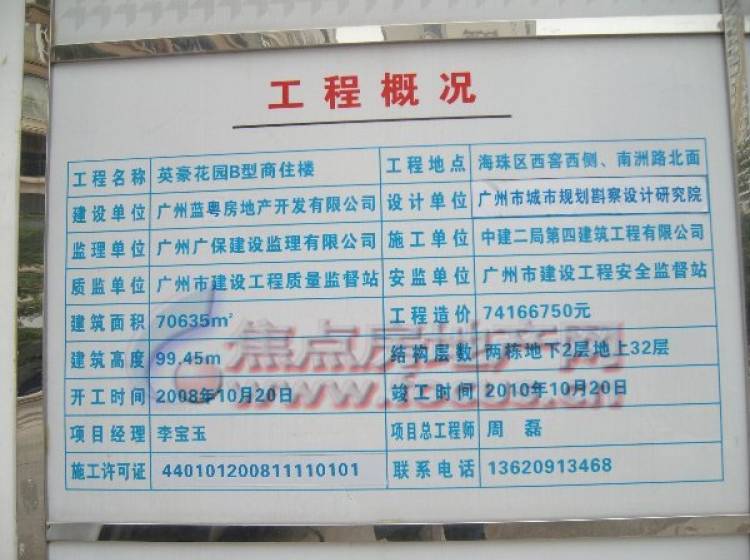 工程概况
工程名称 英豪花园B型商住楼 工程地点 海珠区西窖西侧、南洲路北面
建设单位 广州蓝粤房地产开发有限公司 设计单位 广州市城市规划勘察设计研究院
监理单位 广州广保建设监理有限公司 施工单位 中建二局第四建筑工程有限公司
质监单位 广州市建设工程质量监督站 安监单位 广州市建设工程安全监督站
建筑面积 70635m² 工程造价 74166750元
焦点房地产网
建筑高度 99.45m 结构层数 两栋地下2层地上32层
www.focus.cn
开工时间 2008年10月20日 竣工时间 2010年10月20日
项目经理 李宝玉 项目总工程师 周磊
施工许可证 440101200811110101 联系电话 13620913468